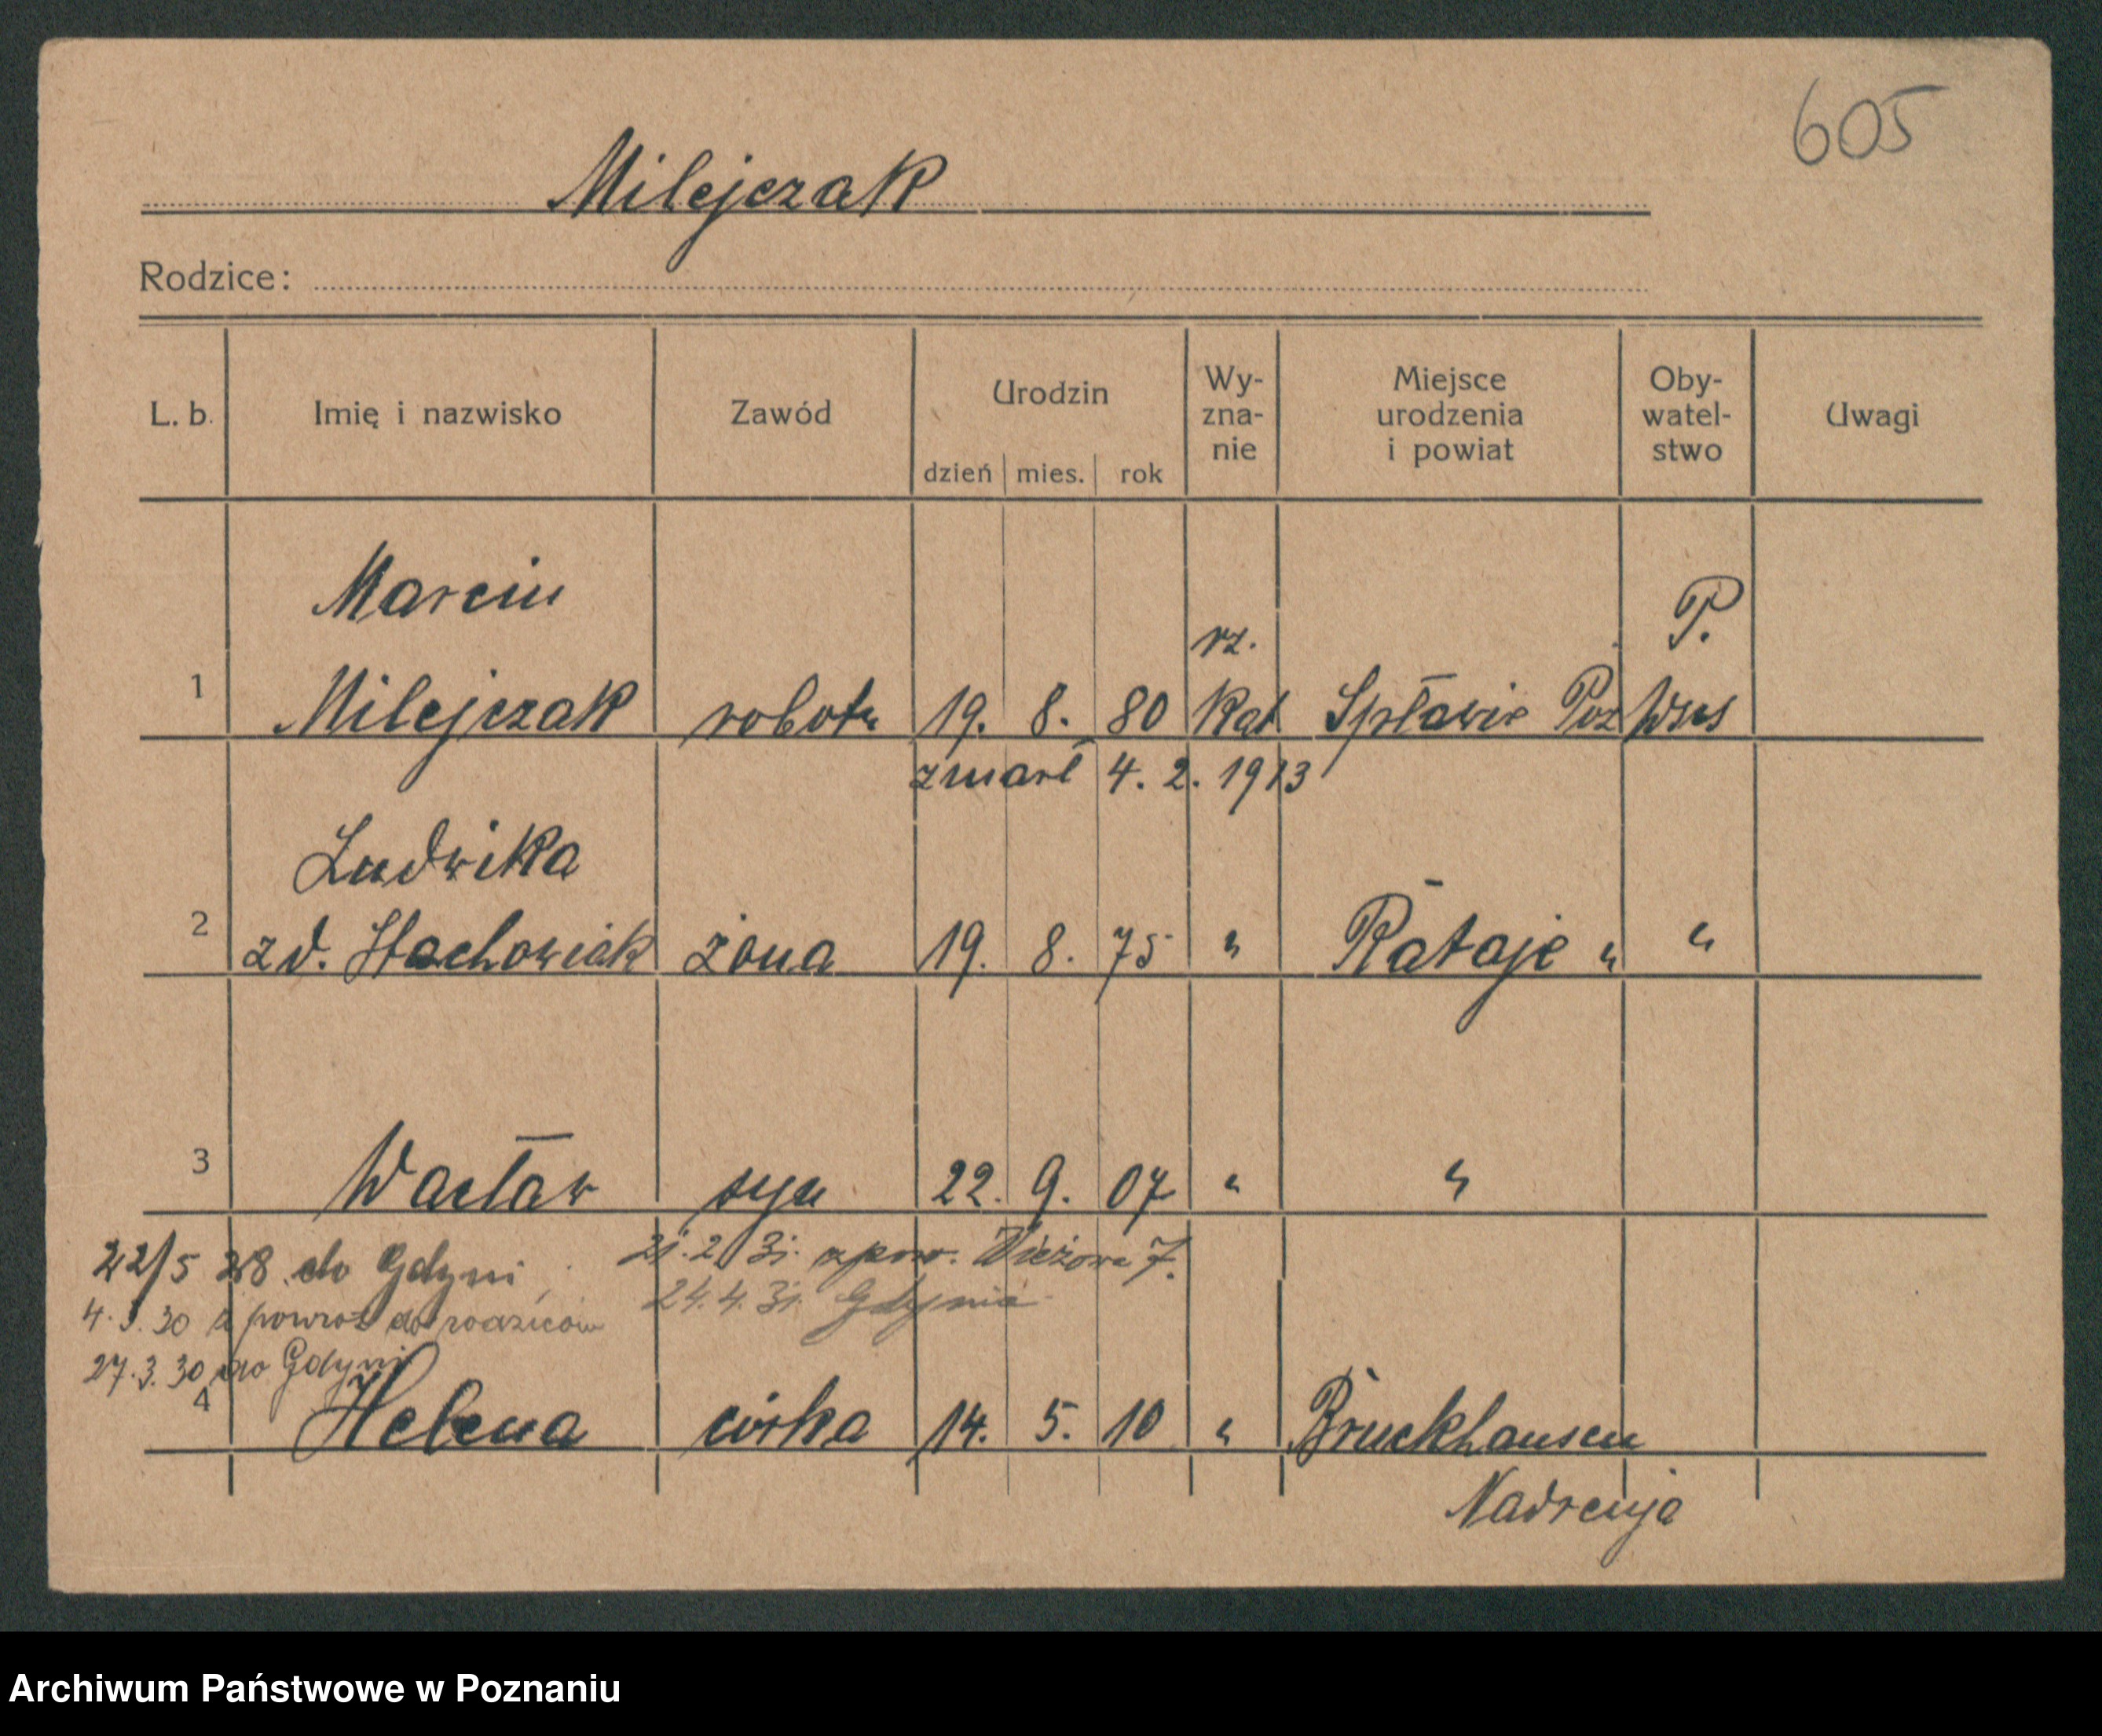 605
Milejczak
Rodzice:
L. b. Imię i nazwisko Zawód Urodzin dzień mies. rok Wy-zna-nie Miejsce urodzenia i powiat Oby-watel-stwo Uwagi
Marcin
rz. P.
1 Milejczak robotn 19. 8. 80 Kat Spławie Poz Wses
zmarł 4. 2. 1913
Ludwika
2 zd. Stachowiak żona 19. 8. 75 " Rataje " "
3 Wacław syn 22. 9. 07 " "
22/5 28 do Gdyni 21. 2. 31. zpow. Wieżowa 7.
4. 3. 30 z powrot do rodziców 24. 4. 31. Gdynia
27. 3. 30 do Gdyni
4 Helena córka 14. 5. 10 " Bruckhausen
Nadrenja
Archiwum Państwowe w Poznaniu